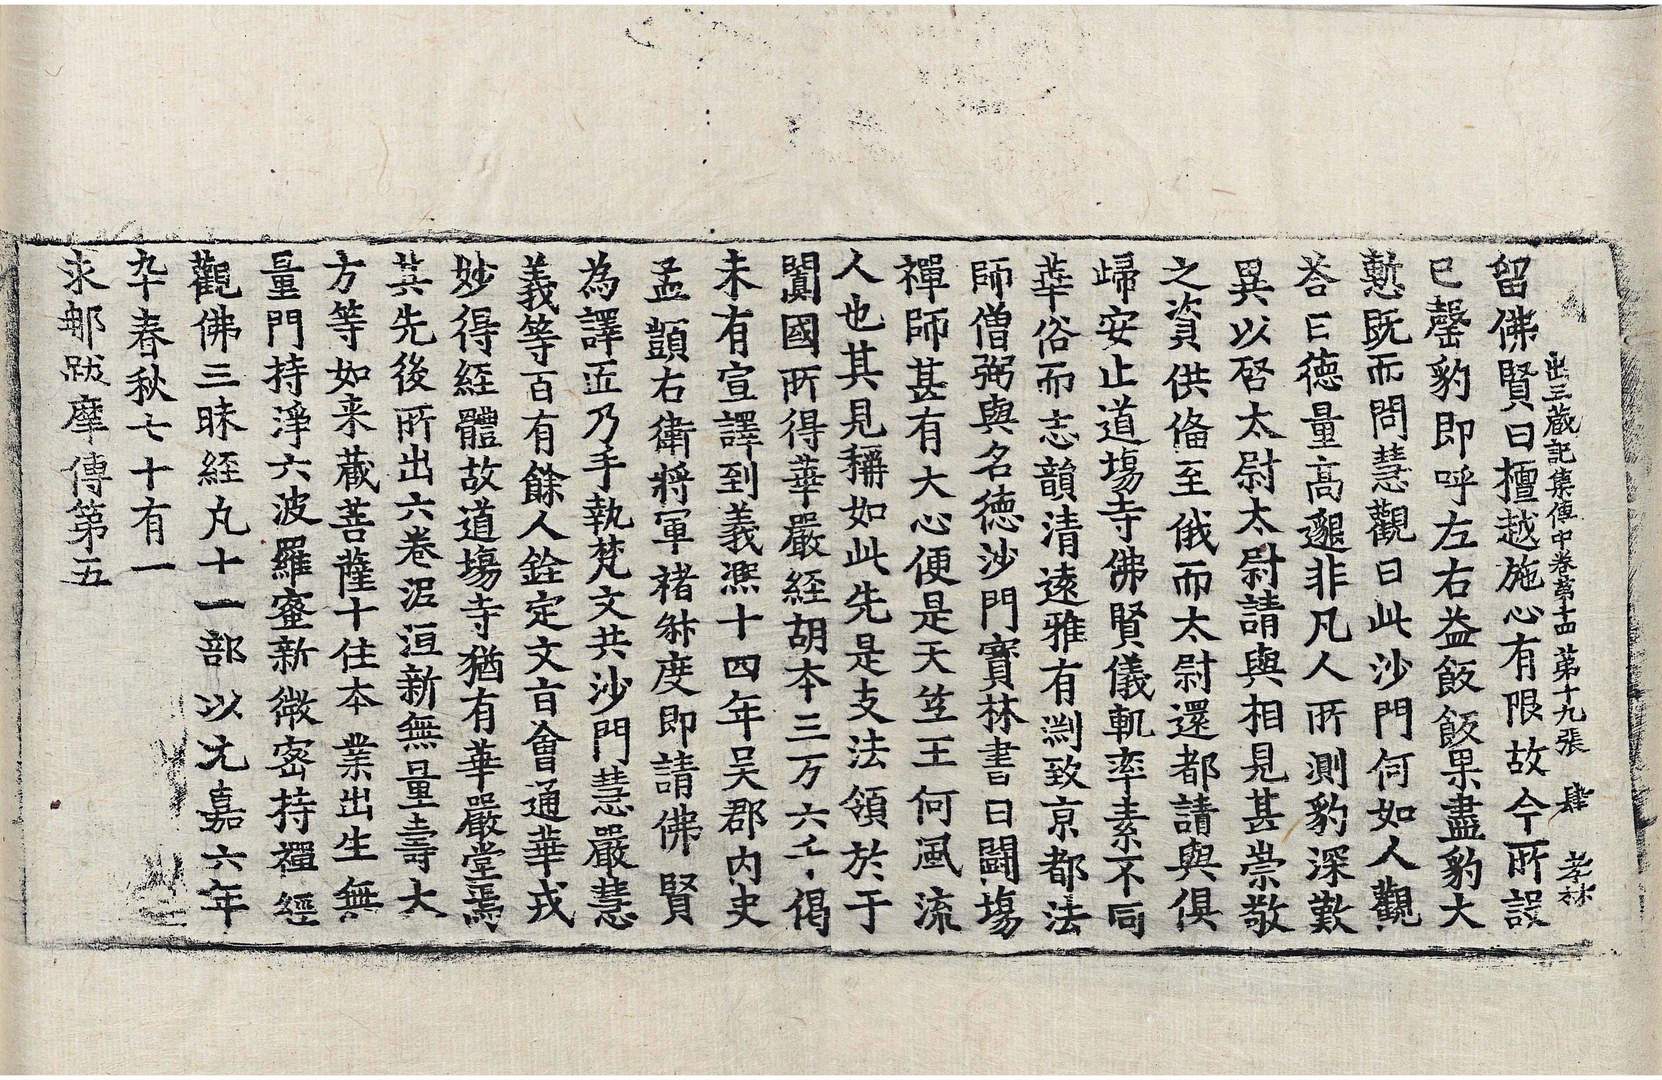 出三藏記集傳中卷第十四 第十九張 肆 孝林
留佛賢曰檀越施心有限故令所設
已罄豹即呼左右益飯飯果盡豹大
慙既而問慧觀曰此沙門何如人觀
荅曰德量高邈非凡人所測豹深歎
異以启太尉太尉請與相見甚崇敬
之資供俻至俄而太尉還都請與俱
歸安止道場寺佛賢儀軌率素不同
華俗而志韻清遠雅有淵致京都法
師僧弼與名德沙門寶林書曰鬪場
禪師甚有大心便是天竺王何風流
人也其見稱如此先是支法領於于
闐國所得華嚴經胡本三万六千偈
未有宣譯到義熈十四年吴郡內史
孟顗右衛將軍褚叔度即請佛賢
為譯匠乃手執梵文共沙門慧嚴慧
義等百有餘人銓定文旨會通華戎
妙得經體故道場寺猶有華嚴堂焉
其先後所出六卷泥洹新無量壽大
方等如来藏菩薩十住本業出生無
量門持淨六波羅蜜新微密持禪經
觀佛三昧經凡十一部以元嘉六年
卒春秋七十有一
求那跋摩傳第五